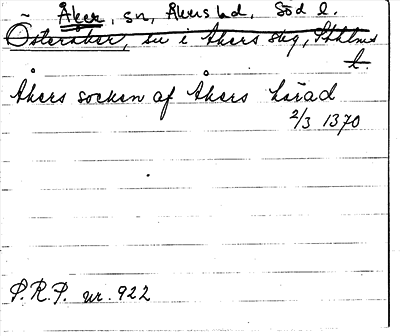 Åker, sn, Åkers hd, Söd l.
Österåker, sn i Åkers skg, Sthlms
l.
Åkers socken af Åkers härad
2/3 1370
P.R.P. nr. 922